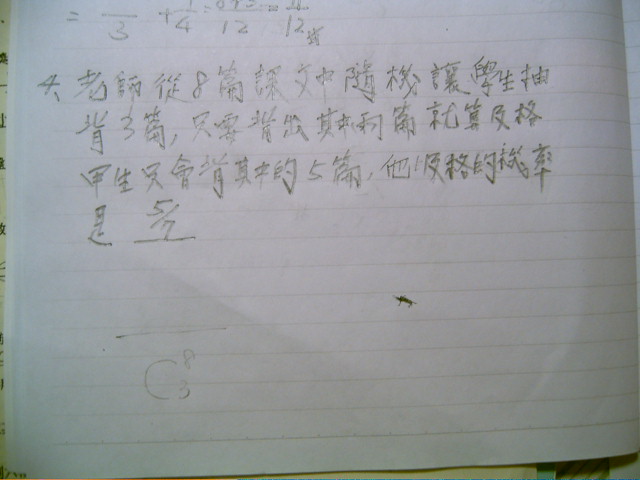 = 3 + 1/4 = 12 = 12
4、老師從8篇課文中隨機讓學生抽
背3篇,只要背出其中兩篇就算及格
甲生只會背其中的5篇,他及格的機率
是 5/7
C 8 3